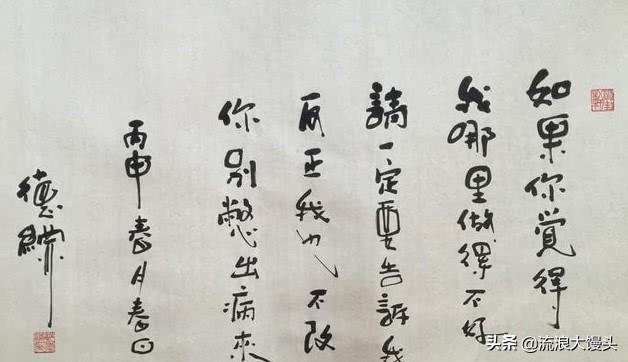 如果你覺得
我哪里做得不好
請一定要告訴我
反正我也不改
你別憋出病來
丙申春月春日
德綱
头条 @流浪大馒头